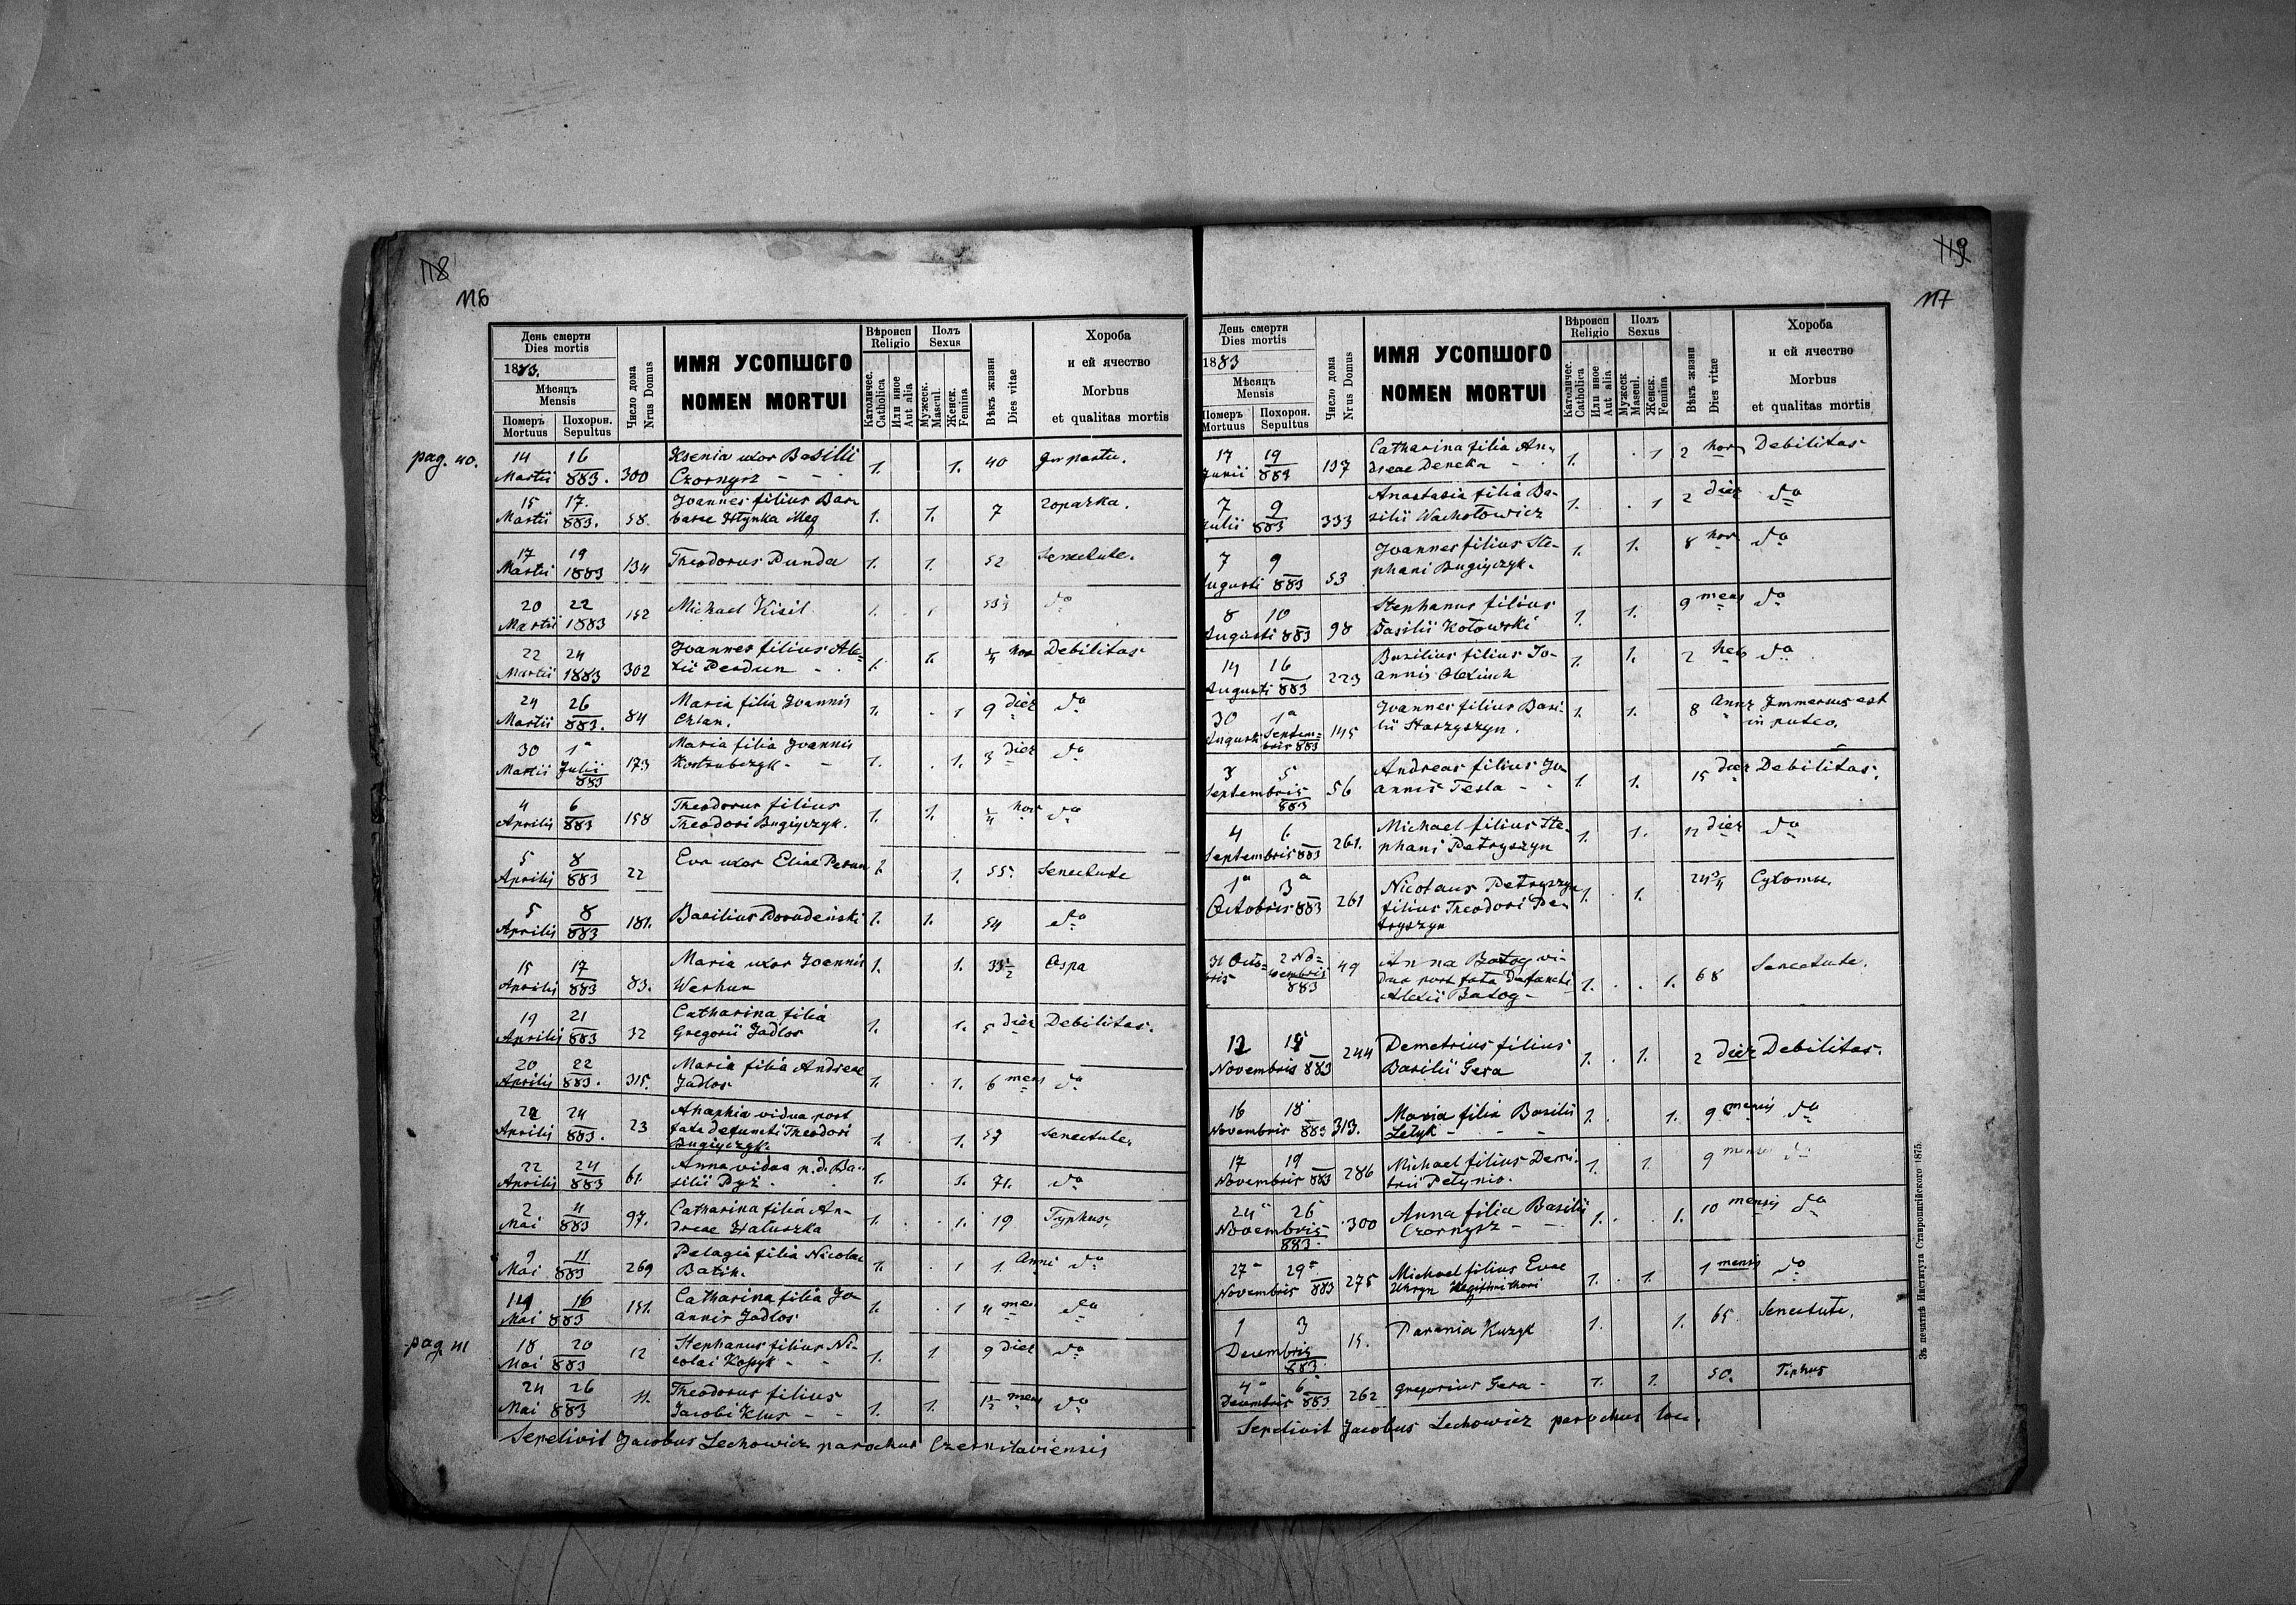 118
116
День смерти
Dies mortis
1883.
Мѣсяцъ
Mensis
Померъ
Mortuus
Похорон.
Sepultus
Число дома
Nrus Domus
ИМЯ УСОПШОГО
NOMEN MORTUI
Вѣроисп
Religio
Католичес.
Catholica
Или иное
Aut alia
Полъ
Sexus
Мужеск.
Mascul.
Женск.
Femina
Вѣкъ жизни
Dies vitae
Хороба
и ей ячество
Morbus
et qualitas mortis
pag. 40.
14 16 Ksenia uxor Basilii
Martii 883. 300 Czornysz - - 1. 1. 40 partu.
15 17. Joannes filius Bar-
Martii 883. 58 barae 1. 1. 7 горячка.
17 19
Martii 1883 134 Theodorus Dunda 1. 1. 52 Senectute.
20 22
Martii 1883 152 Michael Kisil 1. 1 do
22 24 Joannes filius Ale-
Martii 1883 302 xii Perdun - 1. 1. 1/4 hor Debilitas
24 26 Maria filia Joannis
Martii 883. 84 1. 1 9 dier do
30 1a Maria filia Joannis
Martii Julii 883 173 Kostrubczyk - 1. 1. 3 dier do
4 6 Theodorus filius
Aprilis 883 158 Theodori Bugiyczyk. 1. 1. 1/4 hor do
5 8 Eva uxor Eliae Perun
Aprilis 883 22 1. 1. 55. Senectute
5 8
Aprilis 883 181. Basilius 1. 1. 54 do
15 17 Maria uxor Joannis
Aprilis 883 83. Werhun 1. 1. 33 1/2 Ospa
19 21 Catharina filia
Aprilis 883 32 Gregorii Jadlos 1. 1. 5 dier Debilitas.
20 22 Maria filia Andreae
Aprilis 883. 315. Jadlos 1. 1. 6 mens do
22 24 Anaphia vidua post
Aprilis 883. 23 fata defuncti Theodori
Bugiyczyk. 1. 1. 57 senectute.
22 24 Anna vidua p. d. Ba-
Aprilis 883 61. silii Pyż. 1. 1. 71. do
2 4 Catharina filia An-
Mai 883 97. dreae Haluszka 1. 1. 19 Typhus
9 11 Pelagia filia Nicolai
Mai 883 269 Batih. 1. 1 1. Anni do
14 16 Catharina filia Jo-
Mai 883 151. annis Jadlos 1. 1 4 men do
pag. 41
18 20 Stephanus filius Ni-
Mai 883 12 colai - - 1. 1 9 dier do
24 26 Theodorus filius
Mai 883 11. Jacobi Klus - - 1. 1. 1 1/2 mens do
Sepelivit Jacobus Lechowicz parochus Czernilaviensis
119
117
День смерти
Dies mortis
1883
Мѣсяцъ
Mensis
Померъ
Mortuus
Похорон.
Sepultus
Число дома
Nrus Domus
ИМЯ УСОПШОГО
NOMEN MORTUI
Вѣроисп
Religio
Католичес.
Catholica
Или иное
Aut alia
Полъ
Sexus
Мужеск
Mascul.
Женск.
Femina
Вѣкъ жизни
Dies vitae
Хороба
и ей ячество
Morbus
et qualitas mortis
17 19 Catharina filia An-
Junii 883 137 dreae Deneka - 1. 1 2 hor Debilitas
7 9 Anastasia filia Ba-
Julii 883 333 silii Wachołowicz 1. 1 2 dier do
7 9 Joannes filius Ste-
Augusti 883 53 phani Bugiyczyk. 1. 1. 8 hor do
8 10 Stephanus filius
Augusti 883 98 Basilii Kotowski 1. 1. 9 mens do
14 16 Basilius filius Jo-
Augusti 883 223 annis Olexiuch 1. 1. 2 do
30 1a Joannes filius Basi-
Augusti Septembris 883 145 lii Starzyszyn. 1. 1. 8 Annr Immersus est
in puteo.
3 5 Andreas filius Jo-
Septembris 883 56 annis Tesla - 1. 1. 15 dier Debilitas.
4 6 Michael filius Ste-
Septembris 883 261. phani Petryszyn 1. 1. 12 dier do
1a 3a Nicolaus Petryszyn
Octobris 883 261 filius Theodori Pe-
tryszyn 1. 1. 24 3/4 Сухоты.
31 Octo- 2 No- Anna Batog vi-
bris vembris 883 49 dua post fata Defuncti
Alexii Batog - 1. 1. 68 Senectute.
12 15 Demetrius filius
Novembris 883 244 Basilii Gera 1. 1. 2 dier Debilitas.
16 18 Maria filia Basilii
Novembris 883 313. - - 1. 1. 9 mensis do
17 19 Michael filius Demi-
Novembris 883 286 trii 1. 1. 9 mens do
24 26 Anna filia Basilii
Novembris 883. 300 Czornysz - 1. 1. 10 mensis do
27 29 Michael filius Evae
Novembris 883 275 Uhryn illegitimi thori 1. 1. 1 mensis do
1 3
Decembris 883. 15. Parania Kuzyk 1. 1. 65 Senectute.
4 6
Decembris 883 262 Gregorius Gera - 1. 1. 50. Tiphus
Sepelivit Jacobus Lechowicz parochus loci.
Зъ печатнѣ Института Ставропигійского 1875.